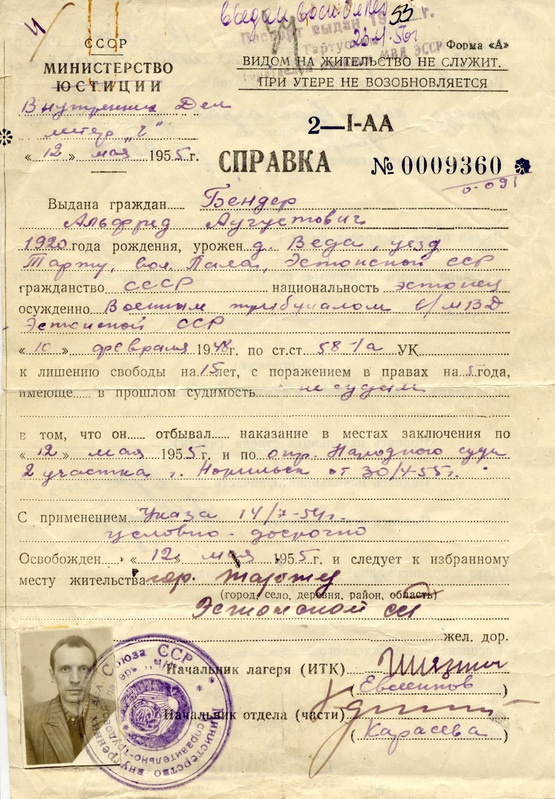 Выдан
23-V-56г
Паспорт выдан
СССР
Форма «А»
МИНИСТЕРСТВО
ВИДОМ НА ЖИТЕЛЬСТВО НЕ СЛУЖИТ.
ЮСТИЦИИ
ПРИ УТЕРЕ НЕ ВОЗОБНОВЛЯЕТСЯ
Внутренних Дел
2—I-АА
«12» мая 1955 г.
СПРАВКА № 0009360
Выдана граждан Бендер
Альфред Аугустович
1920 года рождения, урожен д. Веда, уезд
Тарту, вол. Пала, Эстонской ССР
гражданство СССР национальность эстонец
осужденно Военным трибуналом в/МВД
Эстонской ССР
февраля 1948 г. по ст.ст 58-1а УК
к лишению свободы на 15 лет, с поражением в правах на 5 года,
имеюще в прошлом судимость не судим
в том, что он отбывал наказание в местах заключения по
«12» мая 1955 г. и по опр. Народного суда
2 участка г. Норильск от 30/4-55г.
С применением Указа 14/7-54г.
условно-досрочно
Освобожден «12» мая 1955 г. и следует к избранному
месту жительства гор. Тарту
(город, село, деревня, район, область)
Эстонской ССР
жел. дор.
Начальник лагеря (ИТК)
(Евсеинов)
Начальник отдела (части)
(Карасева)